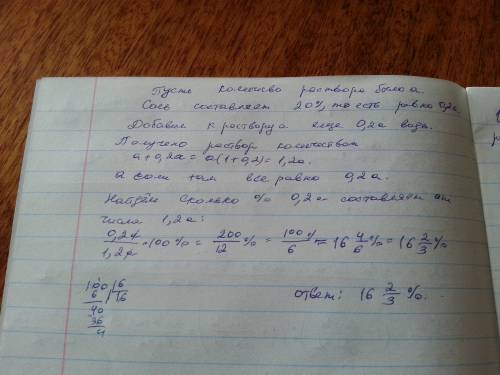 Пусть количество раствора было а.
Соль составляет 20%, то есть равно 0,2а
Добавим к раствору а еще 0,2а воды.
Получено раствор количеством
а + 0,2а = а(1+0,2) = 1,2а.
а соли там все равно 0,2а.
Найдём сколько % 0,2а составляет от
числа 1,2а:
0,2а/1,2а · 100% = 200/12 % = 100/6 % = 16 4/6 % = 16 2/3 %
100 | 6
6 | 16
40
36
4
ответ: 16 2/3 %.